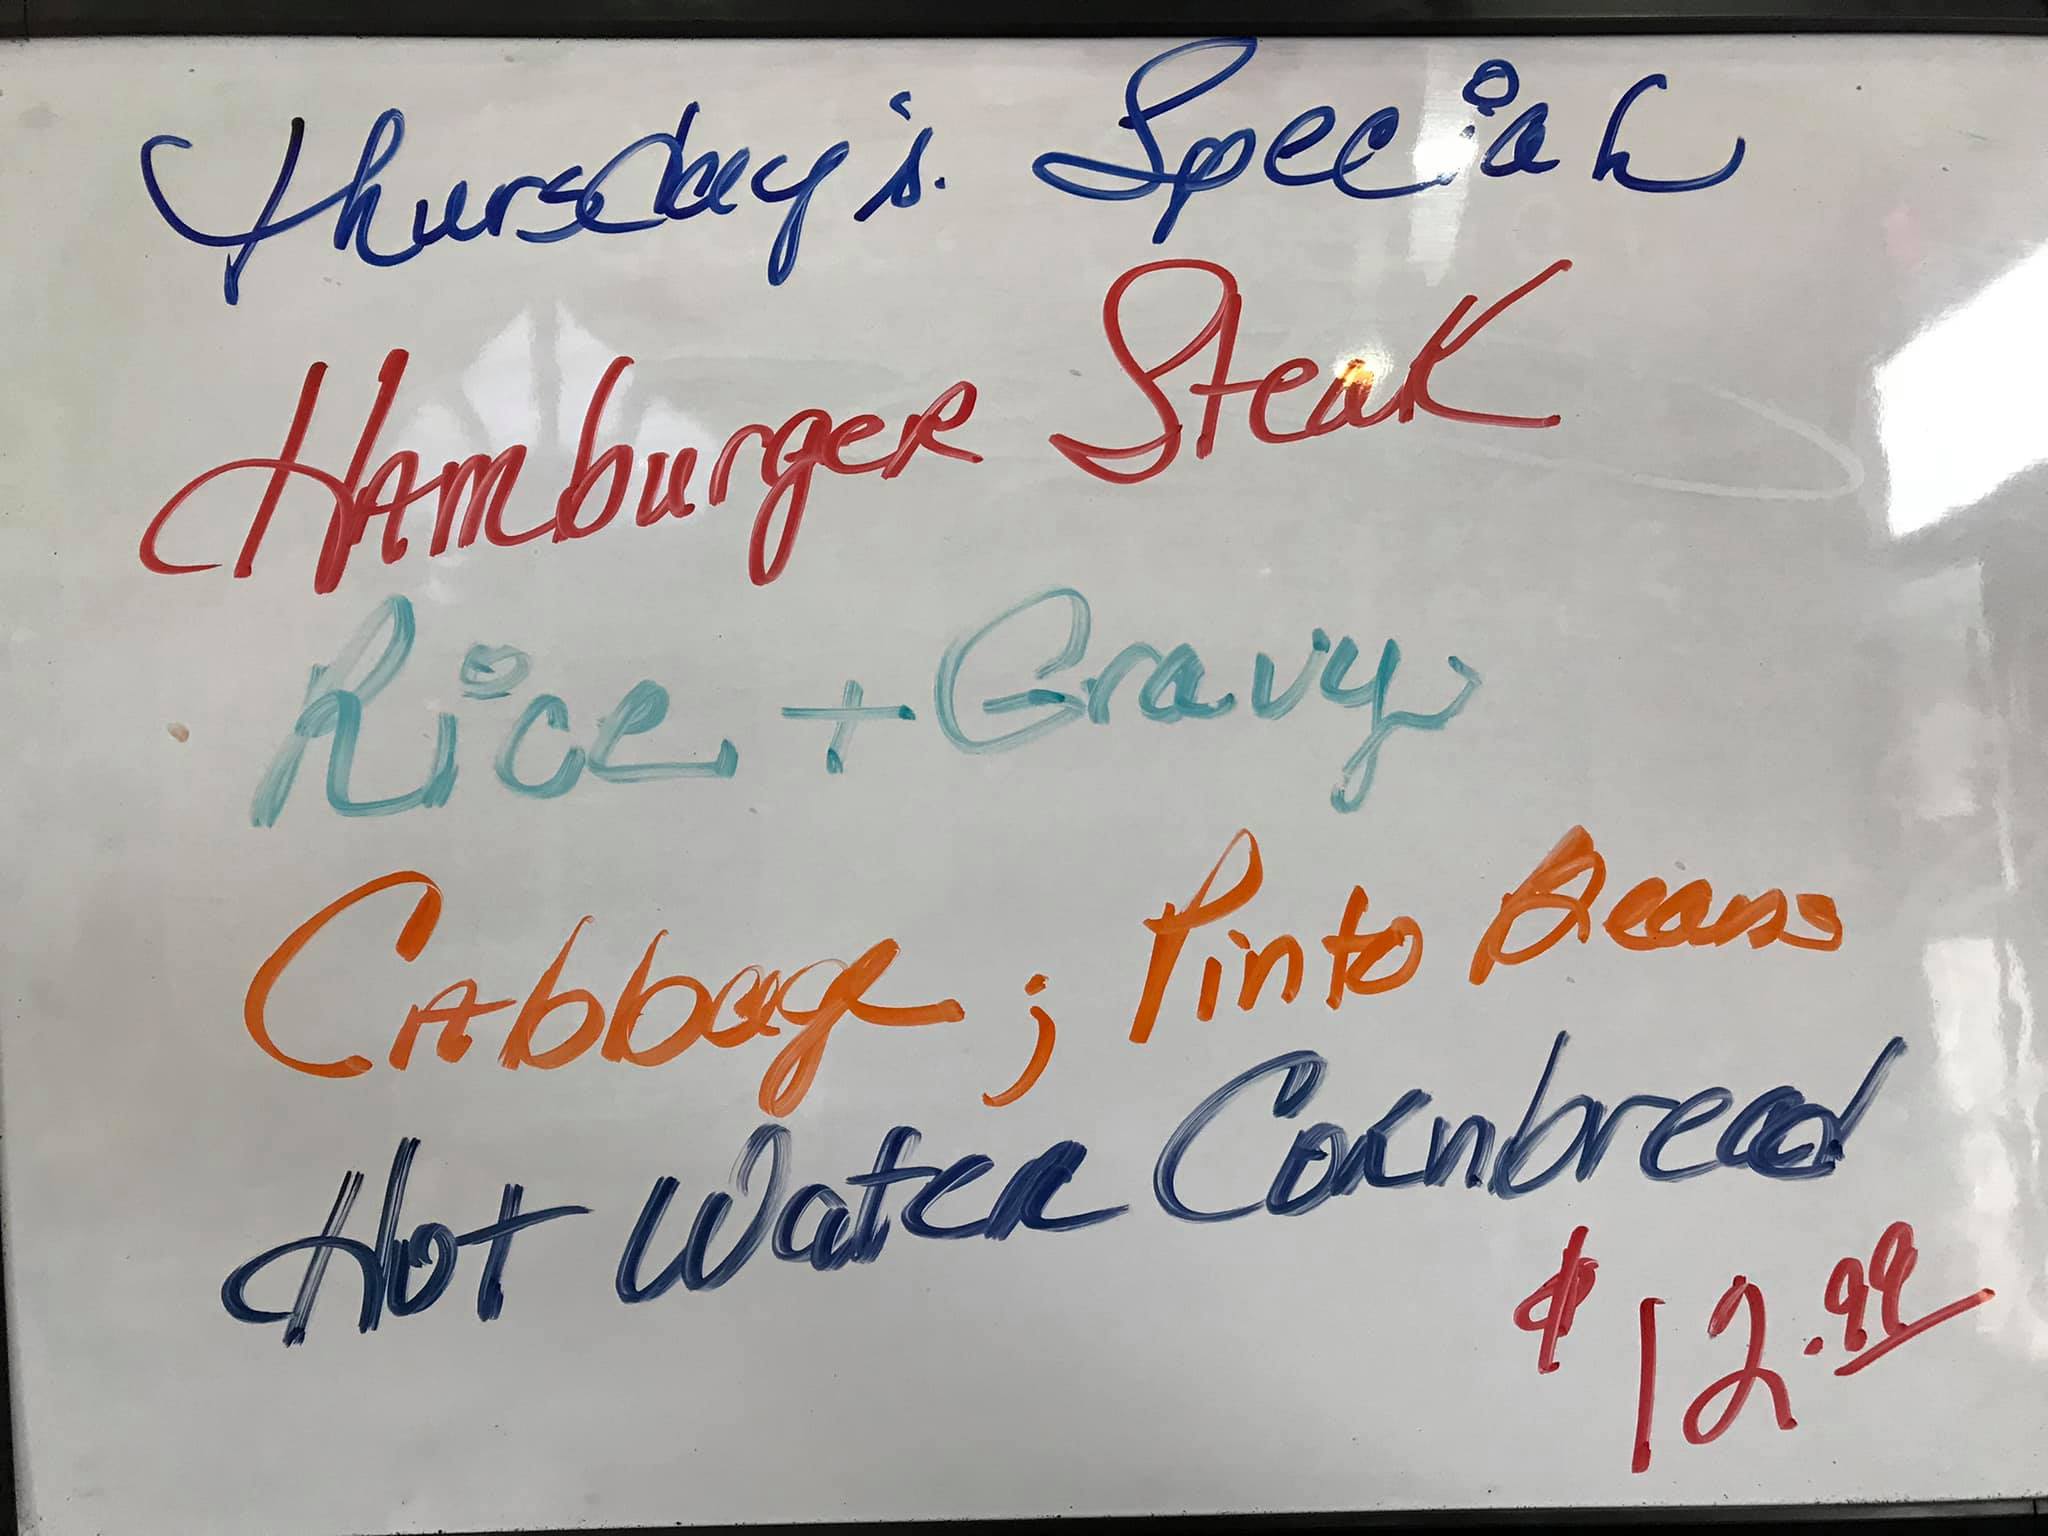 Thursday's Special
Hamburger Steak
Rice + Gravy
Cabbage; Pinto Beans
Hot Water Cornbread
$12.99